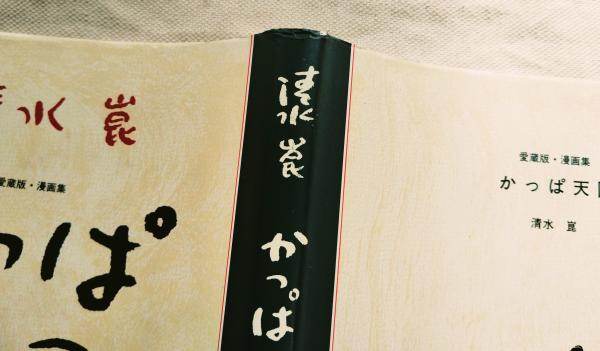 清水 崑
かっぱ
水 崑
愛蔵版・漫画集
っぱ
愛蔵版・漫画集
かっぱ天
清水 崑